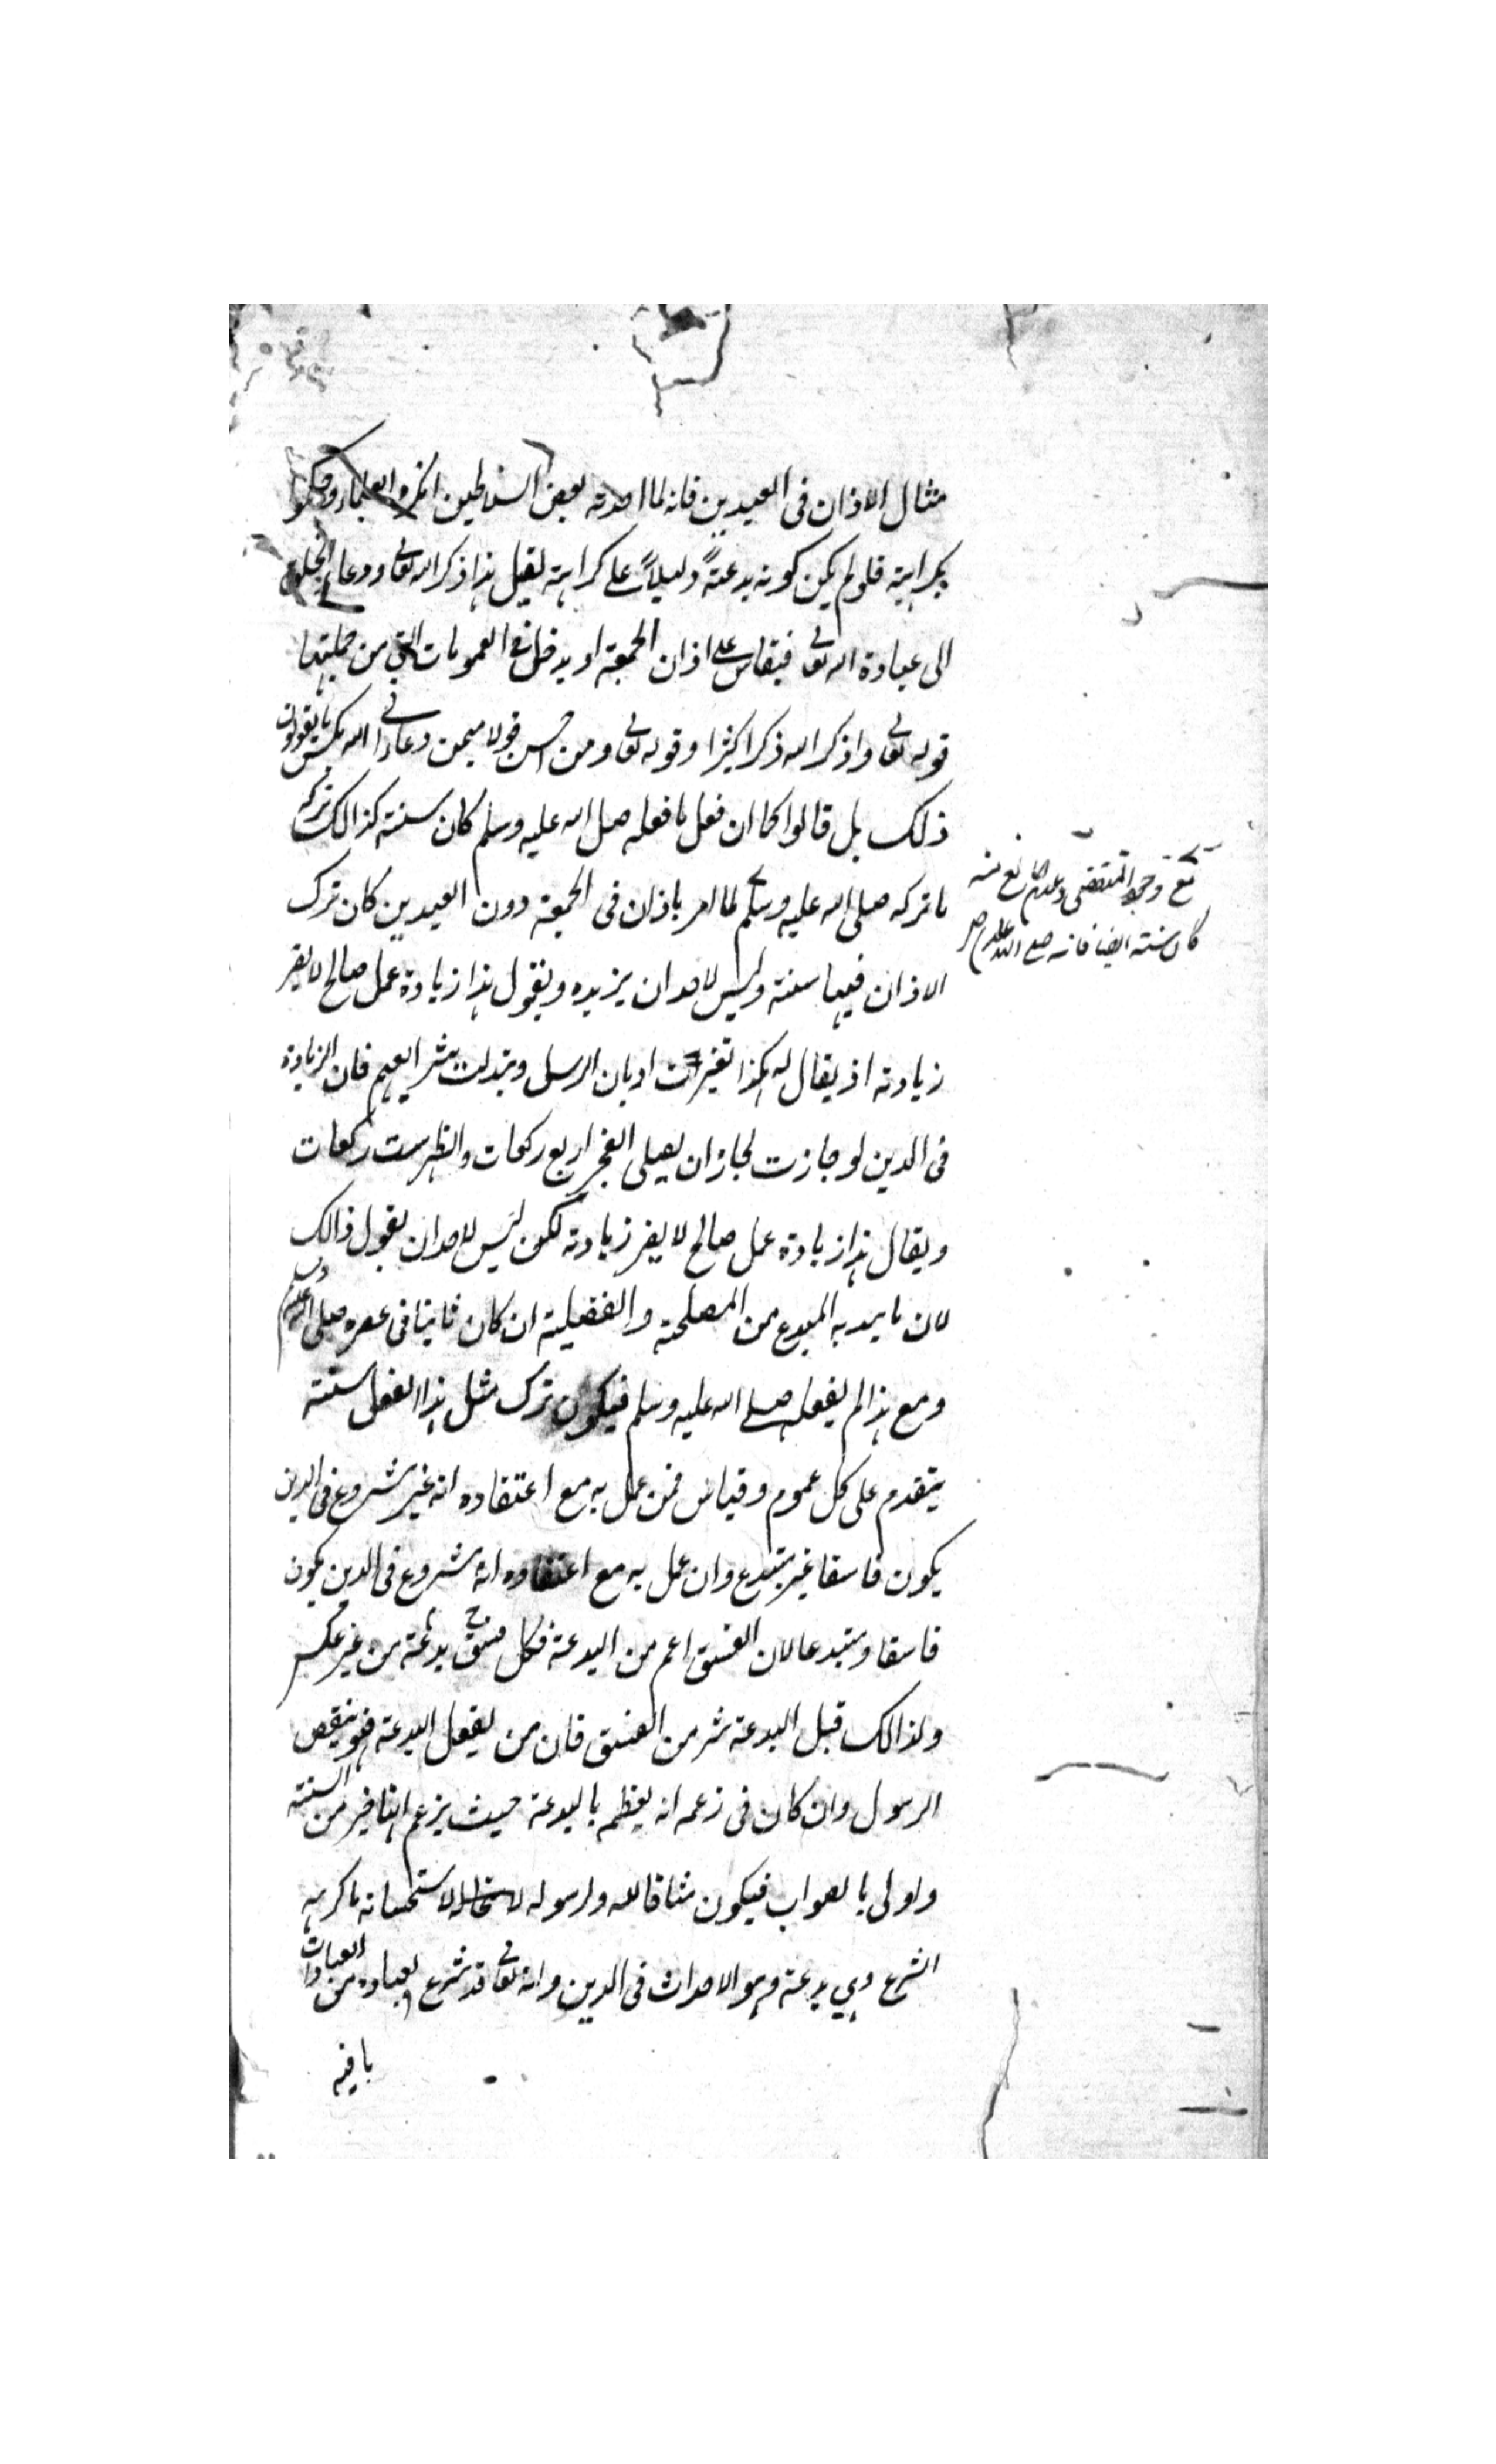 مثال الاذان فى العيدين فانه لما احدثه بعض السلاطين انكروا العلماء وحكموا
بكراهية فلولم يكن كونه بدعةً دليلاً على كراهته لقيل هذا ذكر الله تعالى ودعاء الخلق
الى عبادة الله تعالى فيقاس على اذان الجمعة او يدخل فى العمومات التى من جملتها
قوله تعالى واذكر الله ذكرا كثيرا وقوله تعالى ومن احسن قولا ممن دعا الى الله لكن ما يقولون
ذلك بل قالوا كما ان فعل ما فعله صلى الله عليه وسلم كان سنة كذالك تركه
ما تركه صلى الله عليه وسلم لما امر باذان فى الجمعة دون العيدين كان ترك
الاذان فيهما سنة وليس لاحد ان يزيده ويقول هذا زيادة عمل صالح لا يضر
زيادته اذ يقال له هكذا تغيرت اديان الرسل وتبدلت شرائعهم فان الزيادة
فى الدين لو جازت لجاز ان يصلى الفجر اربع ركعات والظهر ست ركعات
ويقال هذا زيادة عمل صالح لا يضر زيادته لكون ليس لاحد ان يقول ذالك
لان ما يبديه المبدع من المصلحة والفضيلة ان كان ثابتا فى عصره صلى الله عليه وسلم
ومع هذا لم يفعله صلى الله عليه وسلم فيكون ترك مثل هذا الفعل سنة
يتقدم على كل عموم وقياس فمن عمل به مع اعتقاده انه غير مشروع فى الدين
يكون فاسقا غير مبتدع وان عمل به مع اعتقاده انه مشروع فى الدين يكون
فاسقا ومبتدعا لان الفسق اعم من البدعة فكل فسق بدعة من غير عكس
ولذالك قيل البدعة شر من الفسق فان من يفعل البدعة فهو ينقص
الرسول وان كان فى زعمه انه يعظمه بالبدعة حيث يزعم انها خير من السنة
واولى بالصواب فيكون مشاقا لله ولرسوله لاستحسانه ما كرهه
الشرع وهي بدعة وهو الاحداث فى الدين وانه تعالى قد شرع لعباده من العبادات
ما فيه
مع وجود المقتضى وعدم المانع منه
كان سنة ايضا فانه صلى الله عليه وسلم